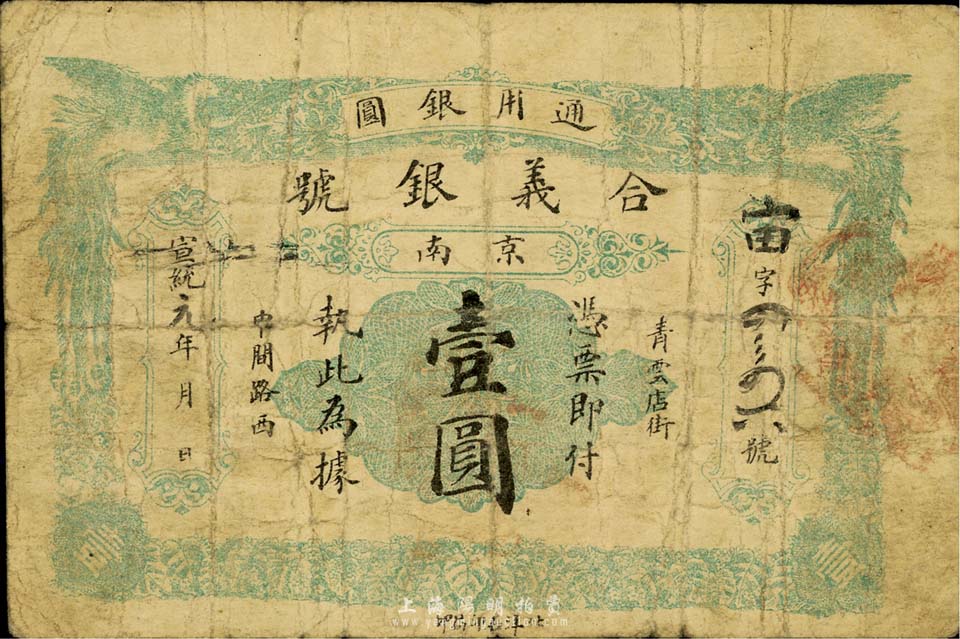 通用銀圓
合義銀號
京南
宙字
號
青雲店街
憑票即付
壹圓
執此為據
中間路西
宣統元年 月 日
壹
上海陽明拍賣